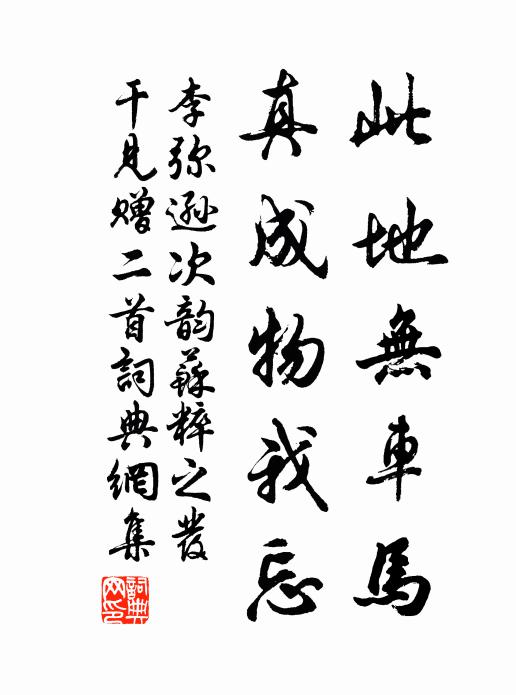 此地無車馬
真成物我忘
李弥遜次韵蘇粹之發
干見贈二首詞典網集
詞典網印